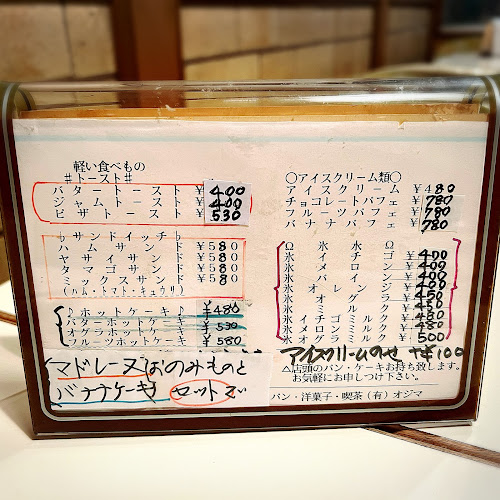 軽い食べもの
♯トースト♯
バタートースト ¥400
ジャムトースト ¥400
ピザトースト ¥530
♭サンドイッチ♭
ハムサンド ¥580
ヤサイサンド ¥580
タマゴサンド ¥580
ミックスサンド ¥580
(ハム・トマト・キュウリ)
♪ホットケーキ♪ ¥480
バターホットケーキ
オグラホットケーキ ¥530
フルーツホットケーキ ¥580
マドレーヌはのみものと
バナナケーキ セットで
〇アイスクリーム類〇
アイスクリーム ¥480
チョコレートパフェ ¥780
フルーツパフェ ¥780
バナナパフェ ¥780
Ω氷氷Ω
氷イチゴ ¥400
氷メロン ¥400
氷パイン ¥400
氷オレンジ ¥400
氷オグラ ¥450
氷ミルク ¥450
氷イチゴミルク ¥480
氷メロンミルク ¥480
氷オグラミルク ¥500
アイスクリームのせ +¥100
△店頭のパン・ケーキお持ち致します。
お気軽にお申しつけ下さい。
パン・洋菓子・喫茶(有)オジマ